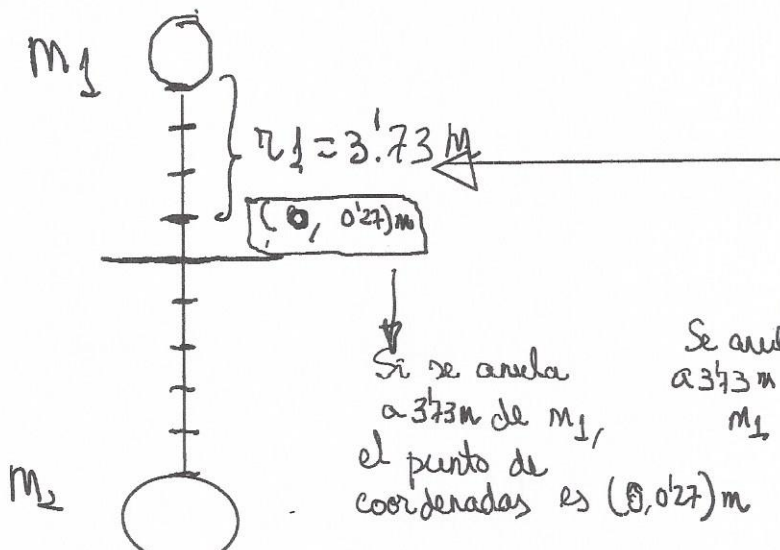 m1
r1 = 3'73 m
(0, 0'27)m
Si se anula
a 3'73m de m1,
el punto de
coordenadas es (0,0'27)m
Se anul
a 3'73 m
m1
m2